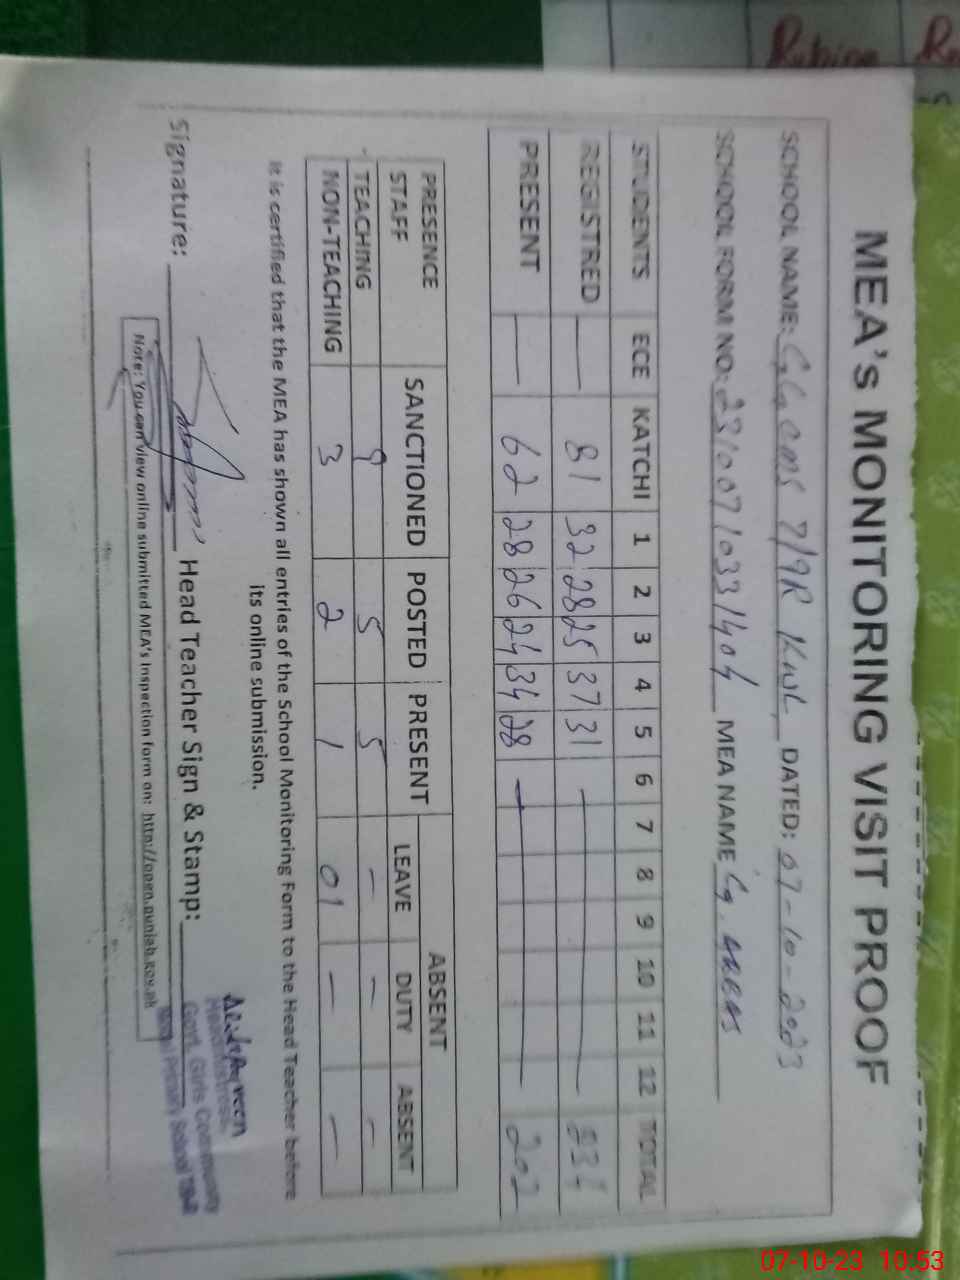 MEA's MONITORING VISIT PROOF
SCHOOL NAME: 7/9R KWL DATED: 07-10-2023
SCHOOL FORM NO: MEA NAME
STUDENTS ECE KATCHI 1 2 3 4 5 6 7 8 9 10 11 12 TOTAL
REGISTRED — 81 32 28 25 37 31 —
PRESENT — 62 28 26 24 34 28 — 202
PRESENCE STAFF SANCTIONED POSTED PRESENT ABSENT
LEAVE DUTY ABSENT
TEACHING 9 5 5 — — —
NON-TEACHING 3 2 1 01 — —
It is certified that the MEA has shown all entries of the School Monitoring Form to the Head Teacher before
its online submission.
Signature: Head Teacher Sign & Stamp:
Headmistress
Govt. Girls Community
Model Primary School 7/9-R
Note: You can view online submitted MEA's Inspection form on: http://open.punjab.gov.pk
07-10-23 10:53